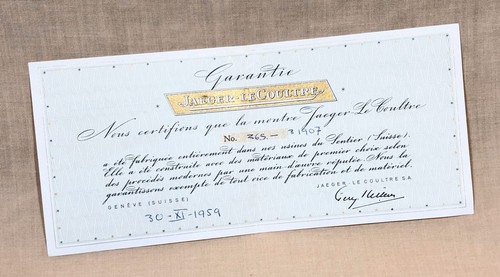 Garantie
JAEGER-LECOULTRE
Nous certifions que la montre Jaeger LeCoultre
No. 365.- 31907
a été fabriquée entièrement dans nos usines du Sentier (Suisse).
Elle a été construite avec des matériaux de premier choix selon
des procédés modernes par une main d'œuvre réputée. Nous la
garantissons exempte de tout vice de fabrication et de matériel.
GENÈVE (SUISSE)
JAEGER-LECOULTRE S.A.
30-XI-1959